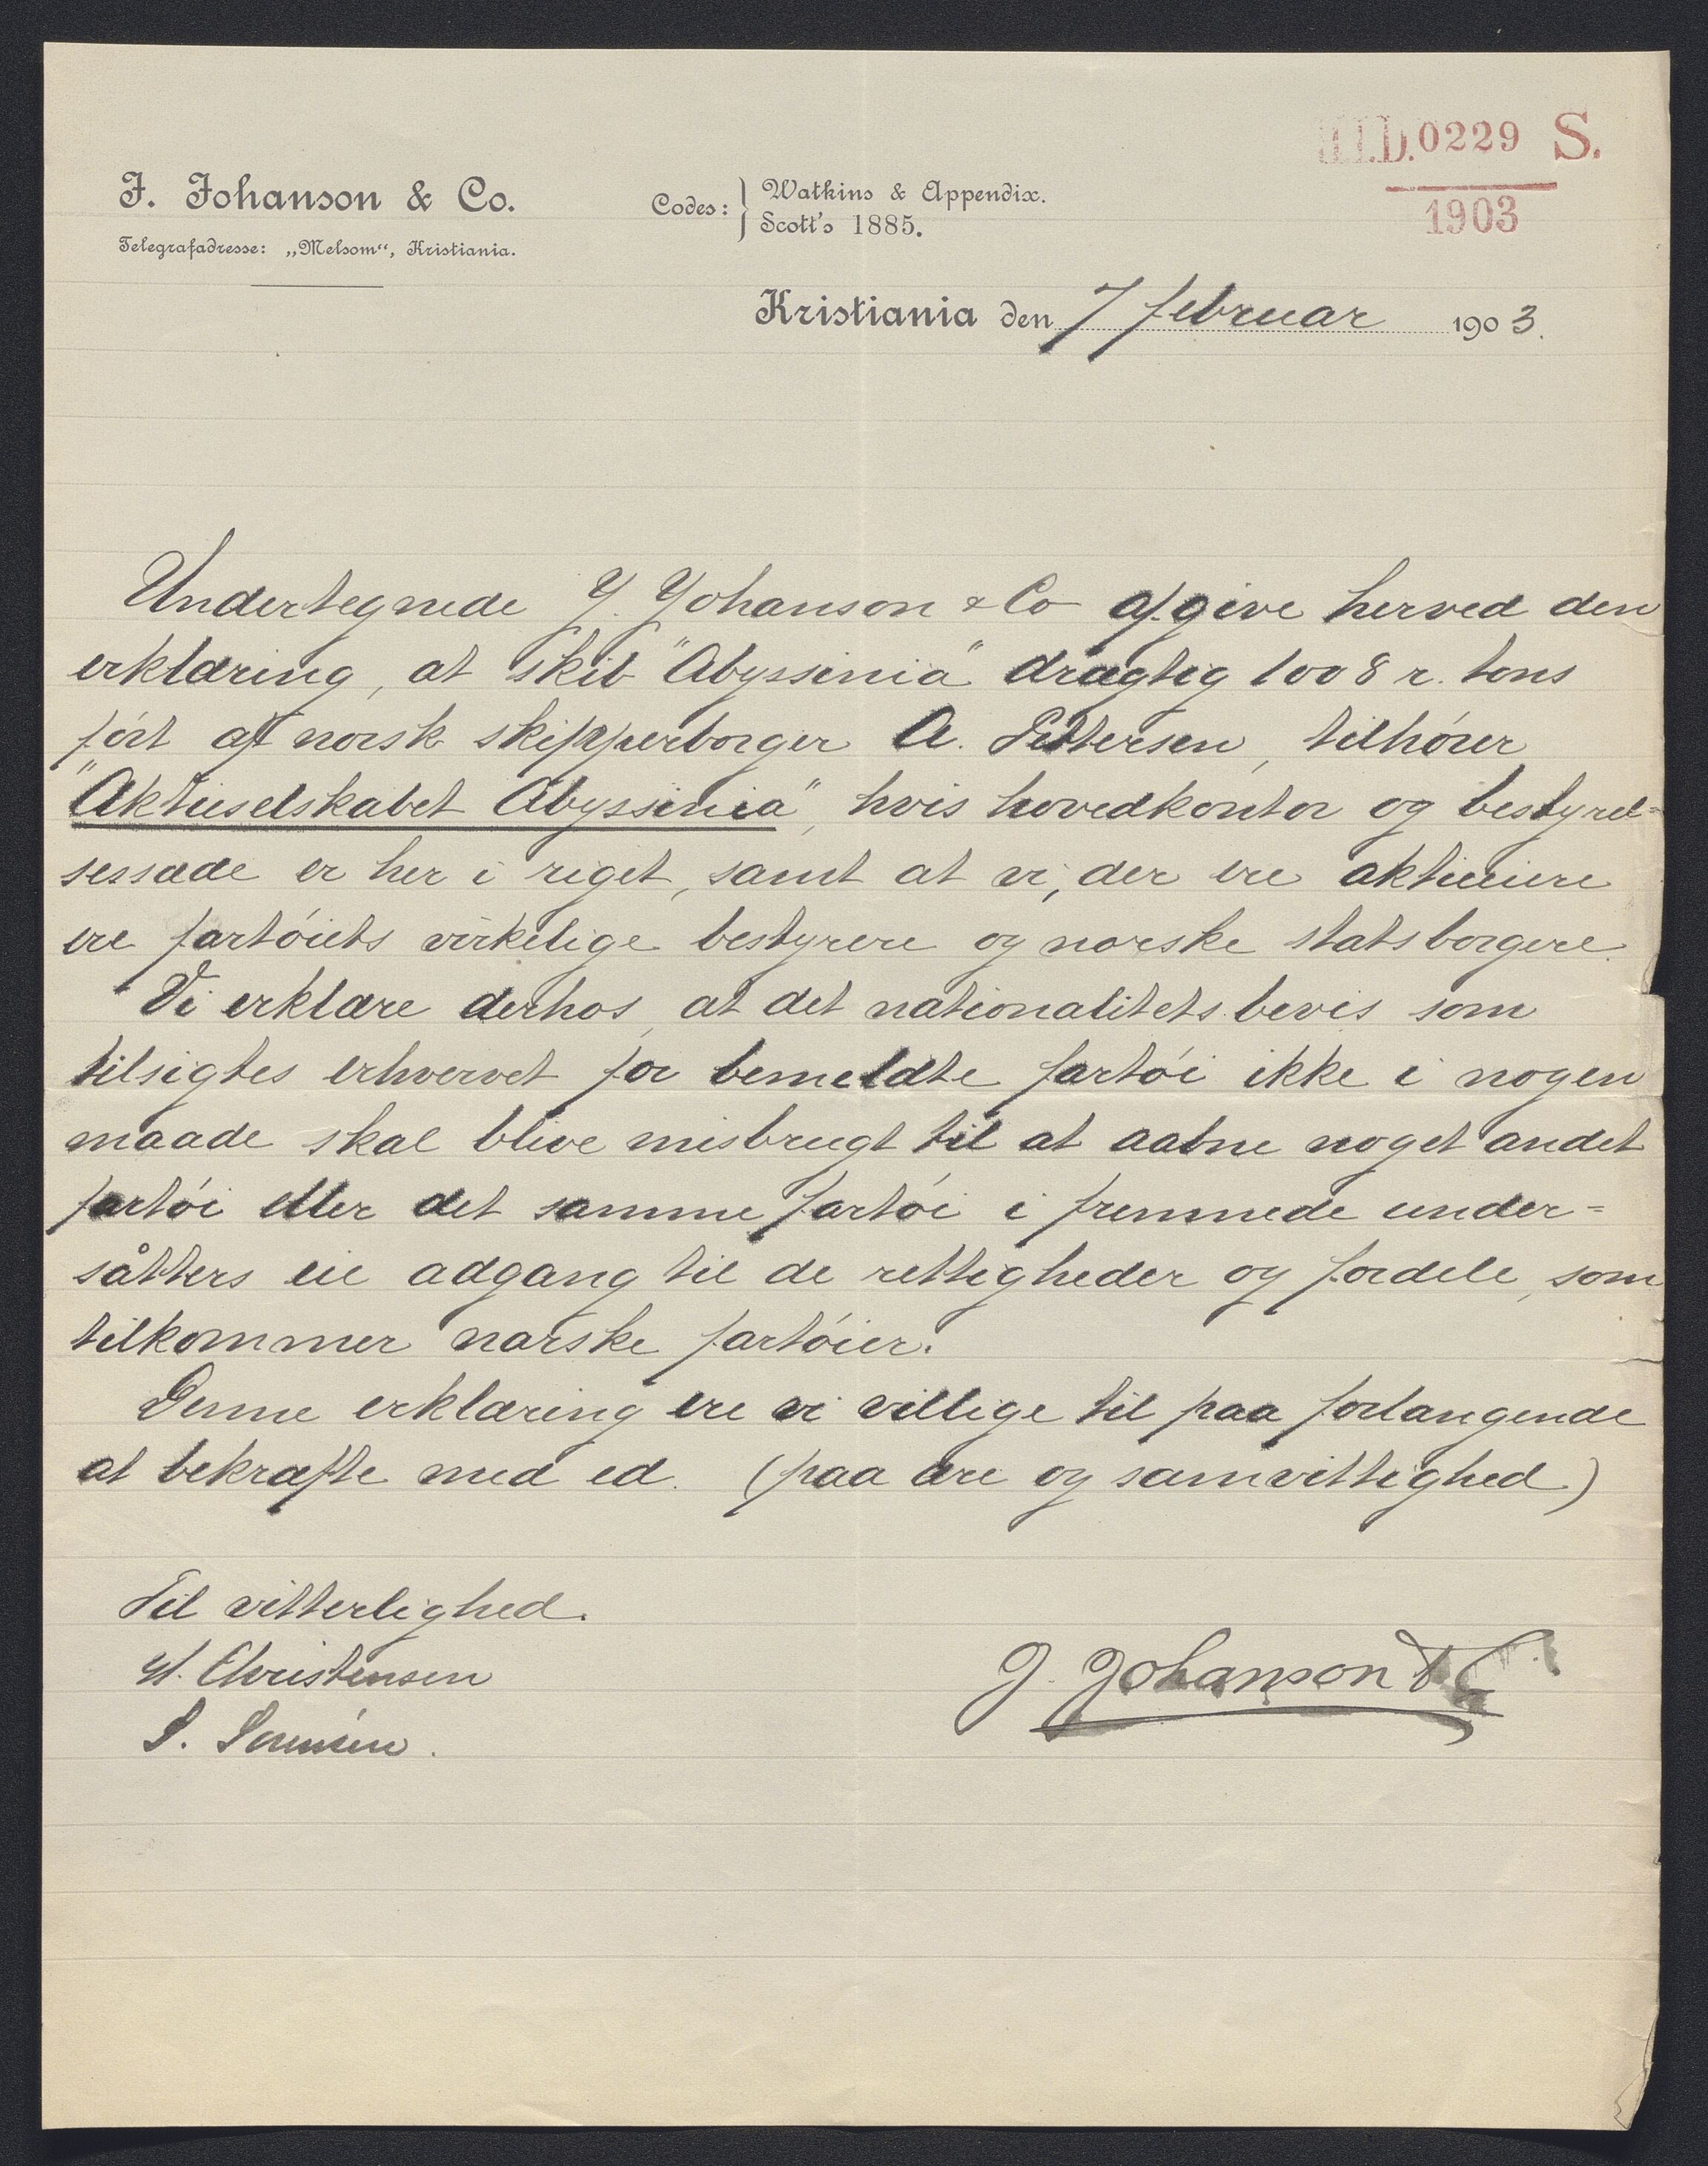 H.I.D. 0229 S.
1903
J. Johanson & Co.
Telegrafadresse: „Melsom“, Kristiania.
Codes: } Watkins & Appendix.
Scott's 1885.
Kristiania den 7 februar 1903.
Undertegnede J. Johanson & Co afgive herved den
erklæring, at skib "Abyssinia" drægtig 1008 r. tons
ført af norsk skipperborger A. Pettersen, tilhører
"Aktieselskabet Abyssinia", hvis hovedkontor og bestyrel=
sessæde er her i riget, samt at vi, der ere aktieeiere
ere fartøiets virkelige bestyrere og norske statsborgere.
Vi erklære derhos, at det nationalitetsbevis som
tilsigtes erhvervet for bemeldte fartøi ikke i nogen
maade skal blive misbrugt til at aabne noget andet
fartøi eller det samme fartøi i fremmede under=
såtters eie adgang til de rettigheder og fordele, som
tilkommer norske fartøier.
Denne erklæring ere vi villige til paa forlangende
at bekræfte med ed. (paa ære og samvittighed)
Til vitterlighed.
Christensen
J. Johanson & Co